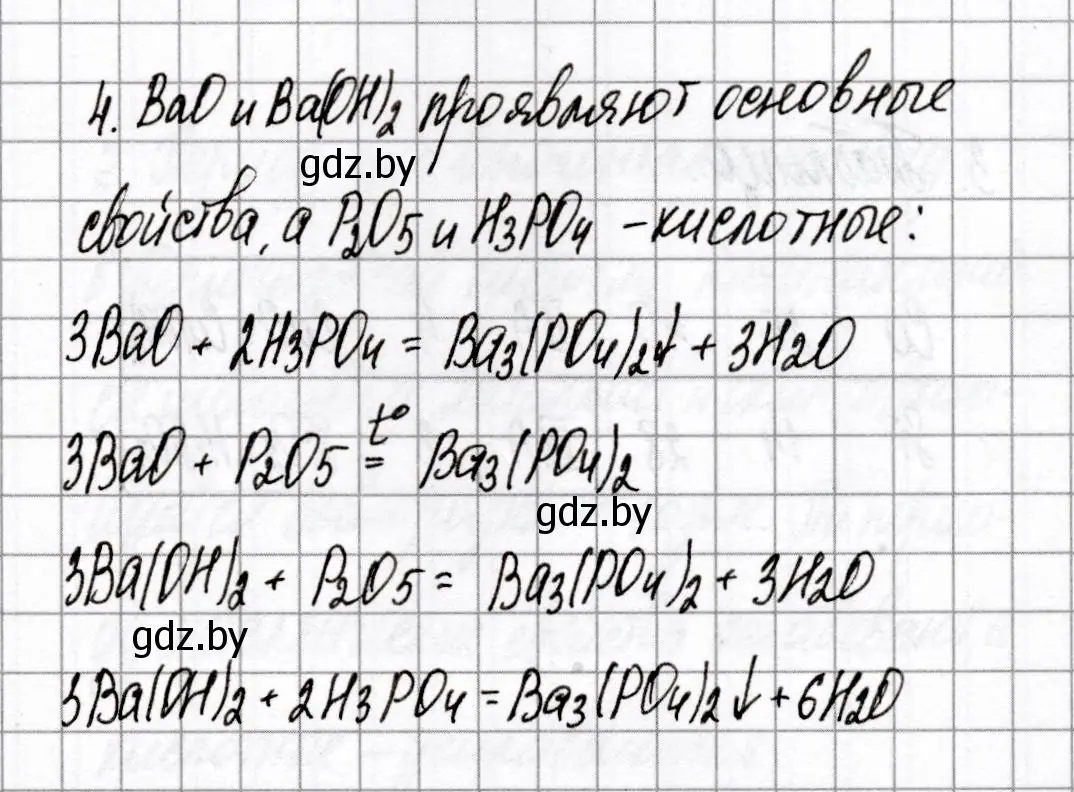 4. BaO и Ba(OH)₂ проявляют основные
gdz.by
свойства, а P₂O₅ и H₃PO₄ – кислотные:
3BaO + 2H₃PO₄ = Ba₃(PO₄)₂↓ + 3H₂O
3BaO + P₂O₅ =^t° Ba₃(PO₄)₂
gdz.by
3Ba(OH)₂ + P₂O₅ = Ba₃(PO₄)₂ + 3H₂O
gdz.by
3Ba(OH)₂ + 2H₃PO₄ = Ba₃(PO₄)₂↓ + 6H₂O